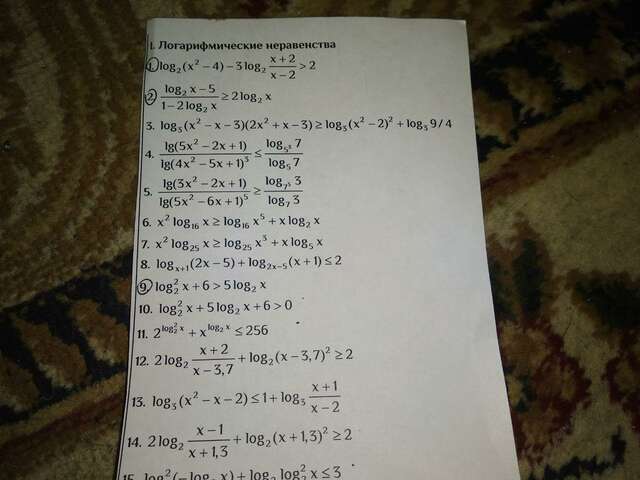 I. Логарифмические неравенства
1. log₂(x² − 4) − 3 log₂ (x + 2)/(x − 2) > 2
2. (log₂ x − 5)/(1 − 2 log₂ x) ≥ 2 log₂ x
3. log₃(x² − x − 3)(2x² + x − 3) ≥ log₃(x² − 2)² + log₃ 9/4
4. lg(5x² − 2x + 1)/lg(4x² − 5x + 1)³ ≤ log₅³ 7/log₅ 7
5. lg(3x² − 2x + 1)/lg(5x² − 6x + 1)⁵ ≥ log₇⁵ 3/log₇ 3
6. x² log₁₆ x ≥ log₁₆ x⁵ + x log₂ x
7. x² log₂₅ x ≥ log₂₅ x³ + x log₅ x
8. logₓ₊₁(2x − 5) + log₂ₓ₋₅(x + 1) ≤ 2
9. log₂² x + 6 > 5 log₂ x
10. log₂² x + 5 log₂ x + 6 > 0
11. 2^(log₂² x) + x^(log₂ x) ≤ 256
12. 2 log₂ (x + 2)/(x − 3,7) + log₂(x − 3,7)² ≥ 2
13. log₃(x² − x − 2) ≤ 1 + log₃ (x + 1)/(x − 2)
14. 2 log₂ (x − 1)/(x + 1,3) + log₂(x + 1,3)² ≥ 2